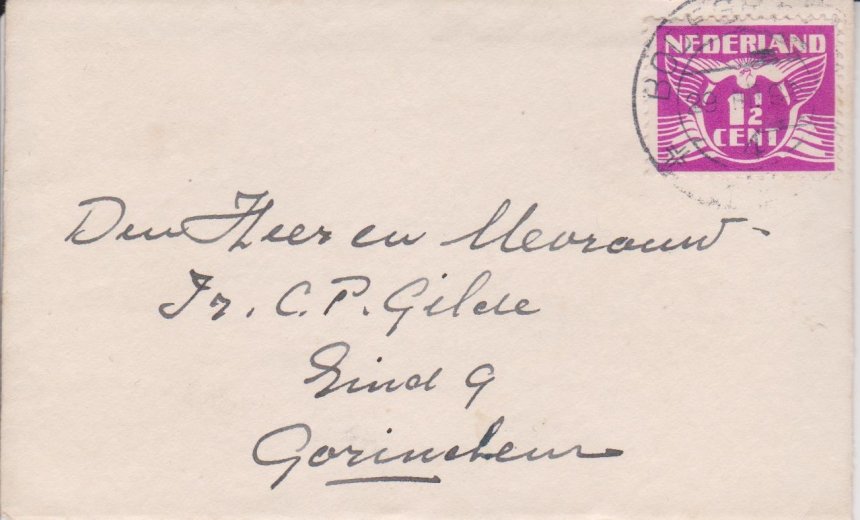 NEDERLAND
1 1/2
CENT
Den Heer en Mevrouw
Ir. C. P. Gilde
Eind 9
Gorinchem